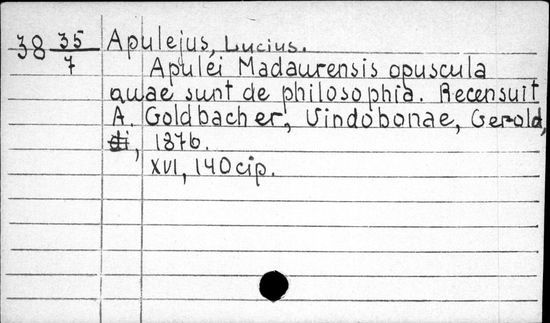 38 35/7 Apulejus, Lucius.
Apulei Madaurensis opuscula
quae sunt de philosophia. Recensuit
A. Goldbacher, Vindobonae, Gerold,
1876.
XVI, 140 cip.